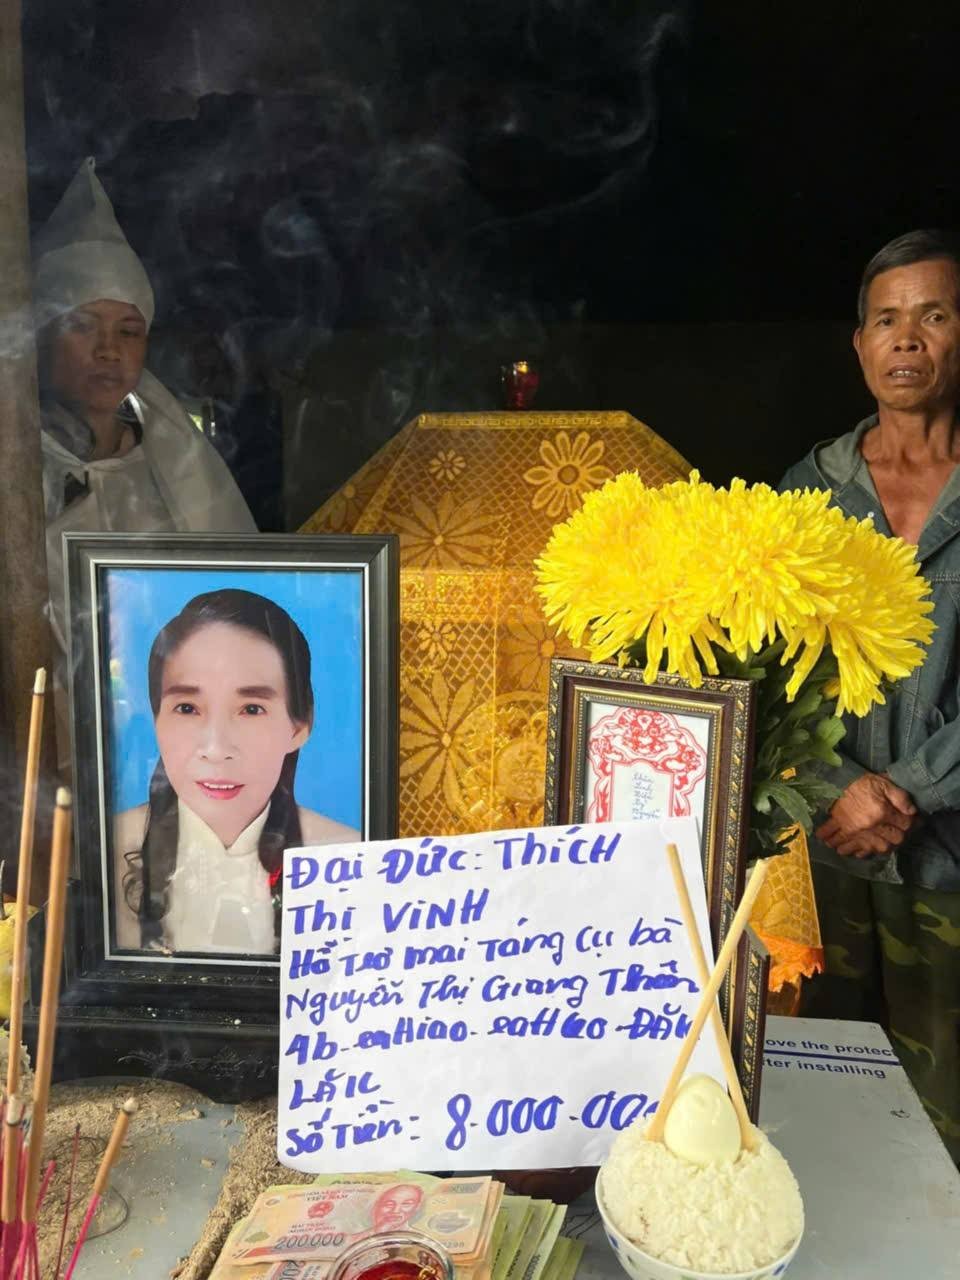 ĐẠI ĐỨC: THÍCH
THỊ VINH
HỖ TRỢ MAI TÁNG CỤ bà
NGUYỄN THỊ Giang Thôn
4b-eaHiao-eaHleo-ĐĂK
LĂK
SỐ TIỀN: 8.000.000
ove the protec
ter installing
VIỆT NAM
200.000